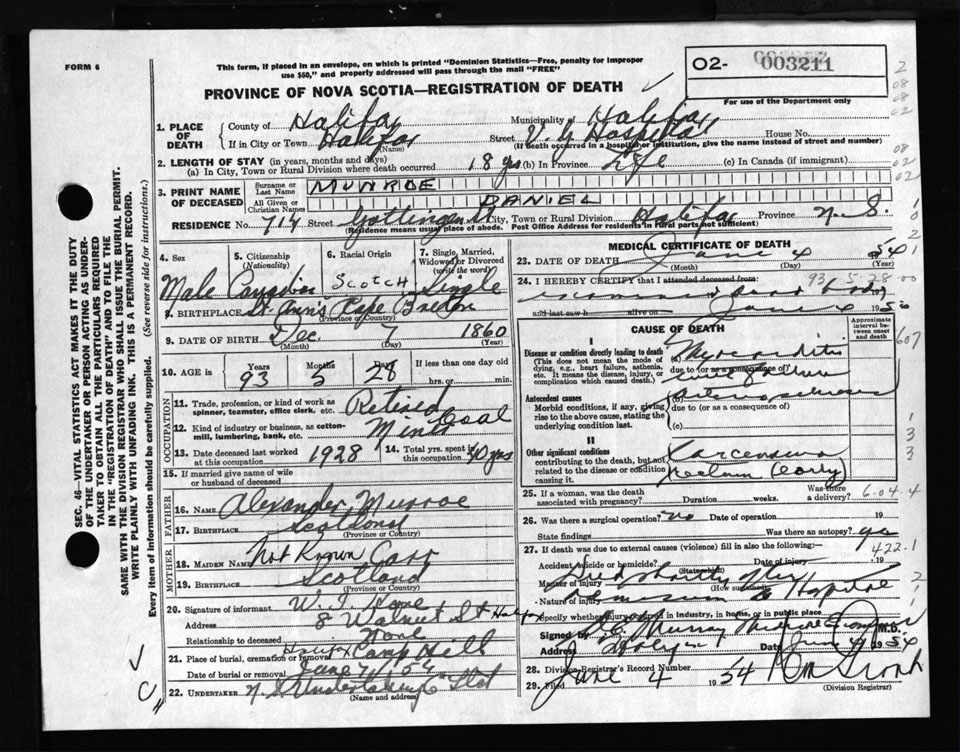 FORM 6
This form, if placed in an envelope, on which is printed "Dominion Statistics—Free, penalty for improper
use $50," and properly addressed will pass through the mail "FREE"
PROVINCE OF NOVA SCOTIA—REGISTRATION OF DEATH
02- 003211
For use of the Department only
1. PLACE OF DEATH County of Halifax Municipality of Halifax
If in City or Town Halifax (Name) Street V. G. Hospital House No.
(If death occurred in a hospital or institution, give the name instead of street and number)
2. LENGTH OF STAY (in years, months and days)
(a) In City, Town or Rural Division where death occurred 18 yrs (b) In Province Life (c) In Canada (if immigrant)
3. PRINT NAME OF DECEASED Surname or Last Name MUNROE
All Given or Christian Names DANIEL
RESIDENCE No. 714 Street Gottingen St City, Town or Rural Division Halifax Province N. S.
(Residence means usual place of abode. Post Office Address for residents in rural parts not sufficient)
4. Sex 5. Citizenship (Nationality) 6. Racial Origin 7. Single, Married, Widowed or Divorced (write the word)
Male Canadian SCOTCH Single
8. BIRTHPLACE St. Ann's Cape Breton
(Province or Country)
9. DATE OF BIRTH Dec. 7 1860
(Month) (Day) (Year)
10. AGE in Years Months Days If less than one day old
93 5 28 hrs. or min.
OCCUPATION
11. Trade, profession, or kind of work as spinner, teamster, office clerk, etc. Retired
12. Kind of industry or business, as cotton-mill, lumbering, bank, etc. Coal
13. Date deceased last worked at this occupation 1928 14. Total yrs. spent in this occupation 40 yrs
15. If married give name of wife or husband of deceased
FATHER
16. NAME Alexander Munroe
17. BIRTHPLACE Scotland
(Province or Country)
MOTHER
18. MAIDEN NAME Not Known Carr
19. BIRTHPLACE Scotland
(Province or Country)
20. Signature of informant W. J.
Address 8 Walnut St Halifax
Relationship to deceased None
21. Place of burial, cremation or removal Halifax Camp Hill
Date of burial or removal June 7 1954
22. UNDERTAKER N. S. Undertaking Co Ltd
(Name and address)
MEDICAL CERTIFICATE OF DEATH
23. DATE OF DEATH June 4 1954
(Month) (Day) (Year)
24. I HEREBY CERTIFY that I attended deceased from:
93-5-28
and last saw h alive on June 4 19
CAUSE OF DEATH
Approximate interval between onset and death
I
Disease or condition directly leading to death
(This does not mean the mode of dying, e.g., heart failure, asthenia, etc. It means the disease, injury, or complication which caused death.)
(a) Myocarditis
due to (or as a consequence of)
Antecedent causes
Morbid conditions, if any, giving rise to the above cause, stating the underlying condition last.
due to (or as a consequence of)
(c)
II
Other significant conditions
contributing to the death, but not related to the disease or condition causing it.
Carcinoma
Rectum (early)
25. If a woman, was the death associated with pregnancy? Duration weeks. Was there a delivery?
604.4
26. Was there a surgical operation? no Date of operation 19
State findings Was there an autopsy? yes
27. If death was due to external causes (violence) fill in also the following:—
422.1
Accident, suicide or homicide? (State which) Date of injury 19
Manner of injury (How sustained)
Died shortly after
Nature of injury admission to Hospital
Specify whether injury occurred in industry, in home, or in public place
Signed by Murray M.D.
Address Halifax Date June 4 1954
28. Division Registrar's Record Number
29. Filed June 4 1954
(Division Registrar)
SEC. 46—VITAL STATISTICS ACT MAKES IT THE DUTY
OF THE UNDERTAKER OR PERSON ACTING AS UNDER-
TAKER TO OBTAIN ALL THE PARTICULARS REQUIRED
IN THE "REGISTRATION OF DEATH" AND TO FILE THE
SAME WITH THE DIVISION REGISTRAR WHO SHALL ISSUE THE BURIAL PERMIT.
WRITE PLAINLY WITH UNFADING INK. THIS IS A PERMANENT RECORD.
Every item of information should be carefully supplied. (See reverse side for instructions.)